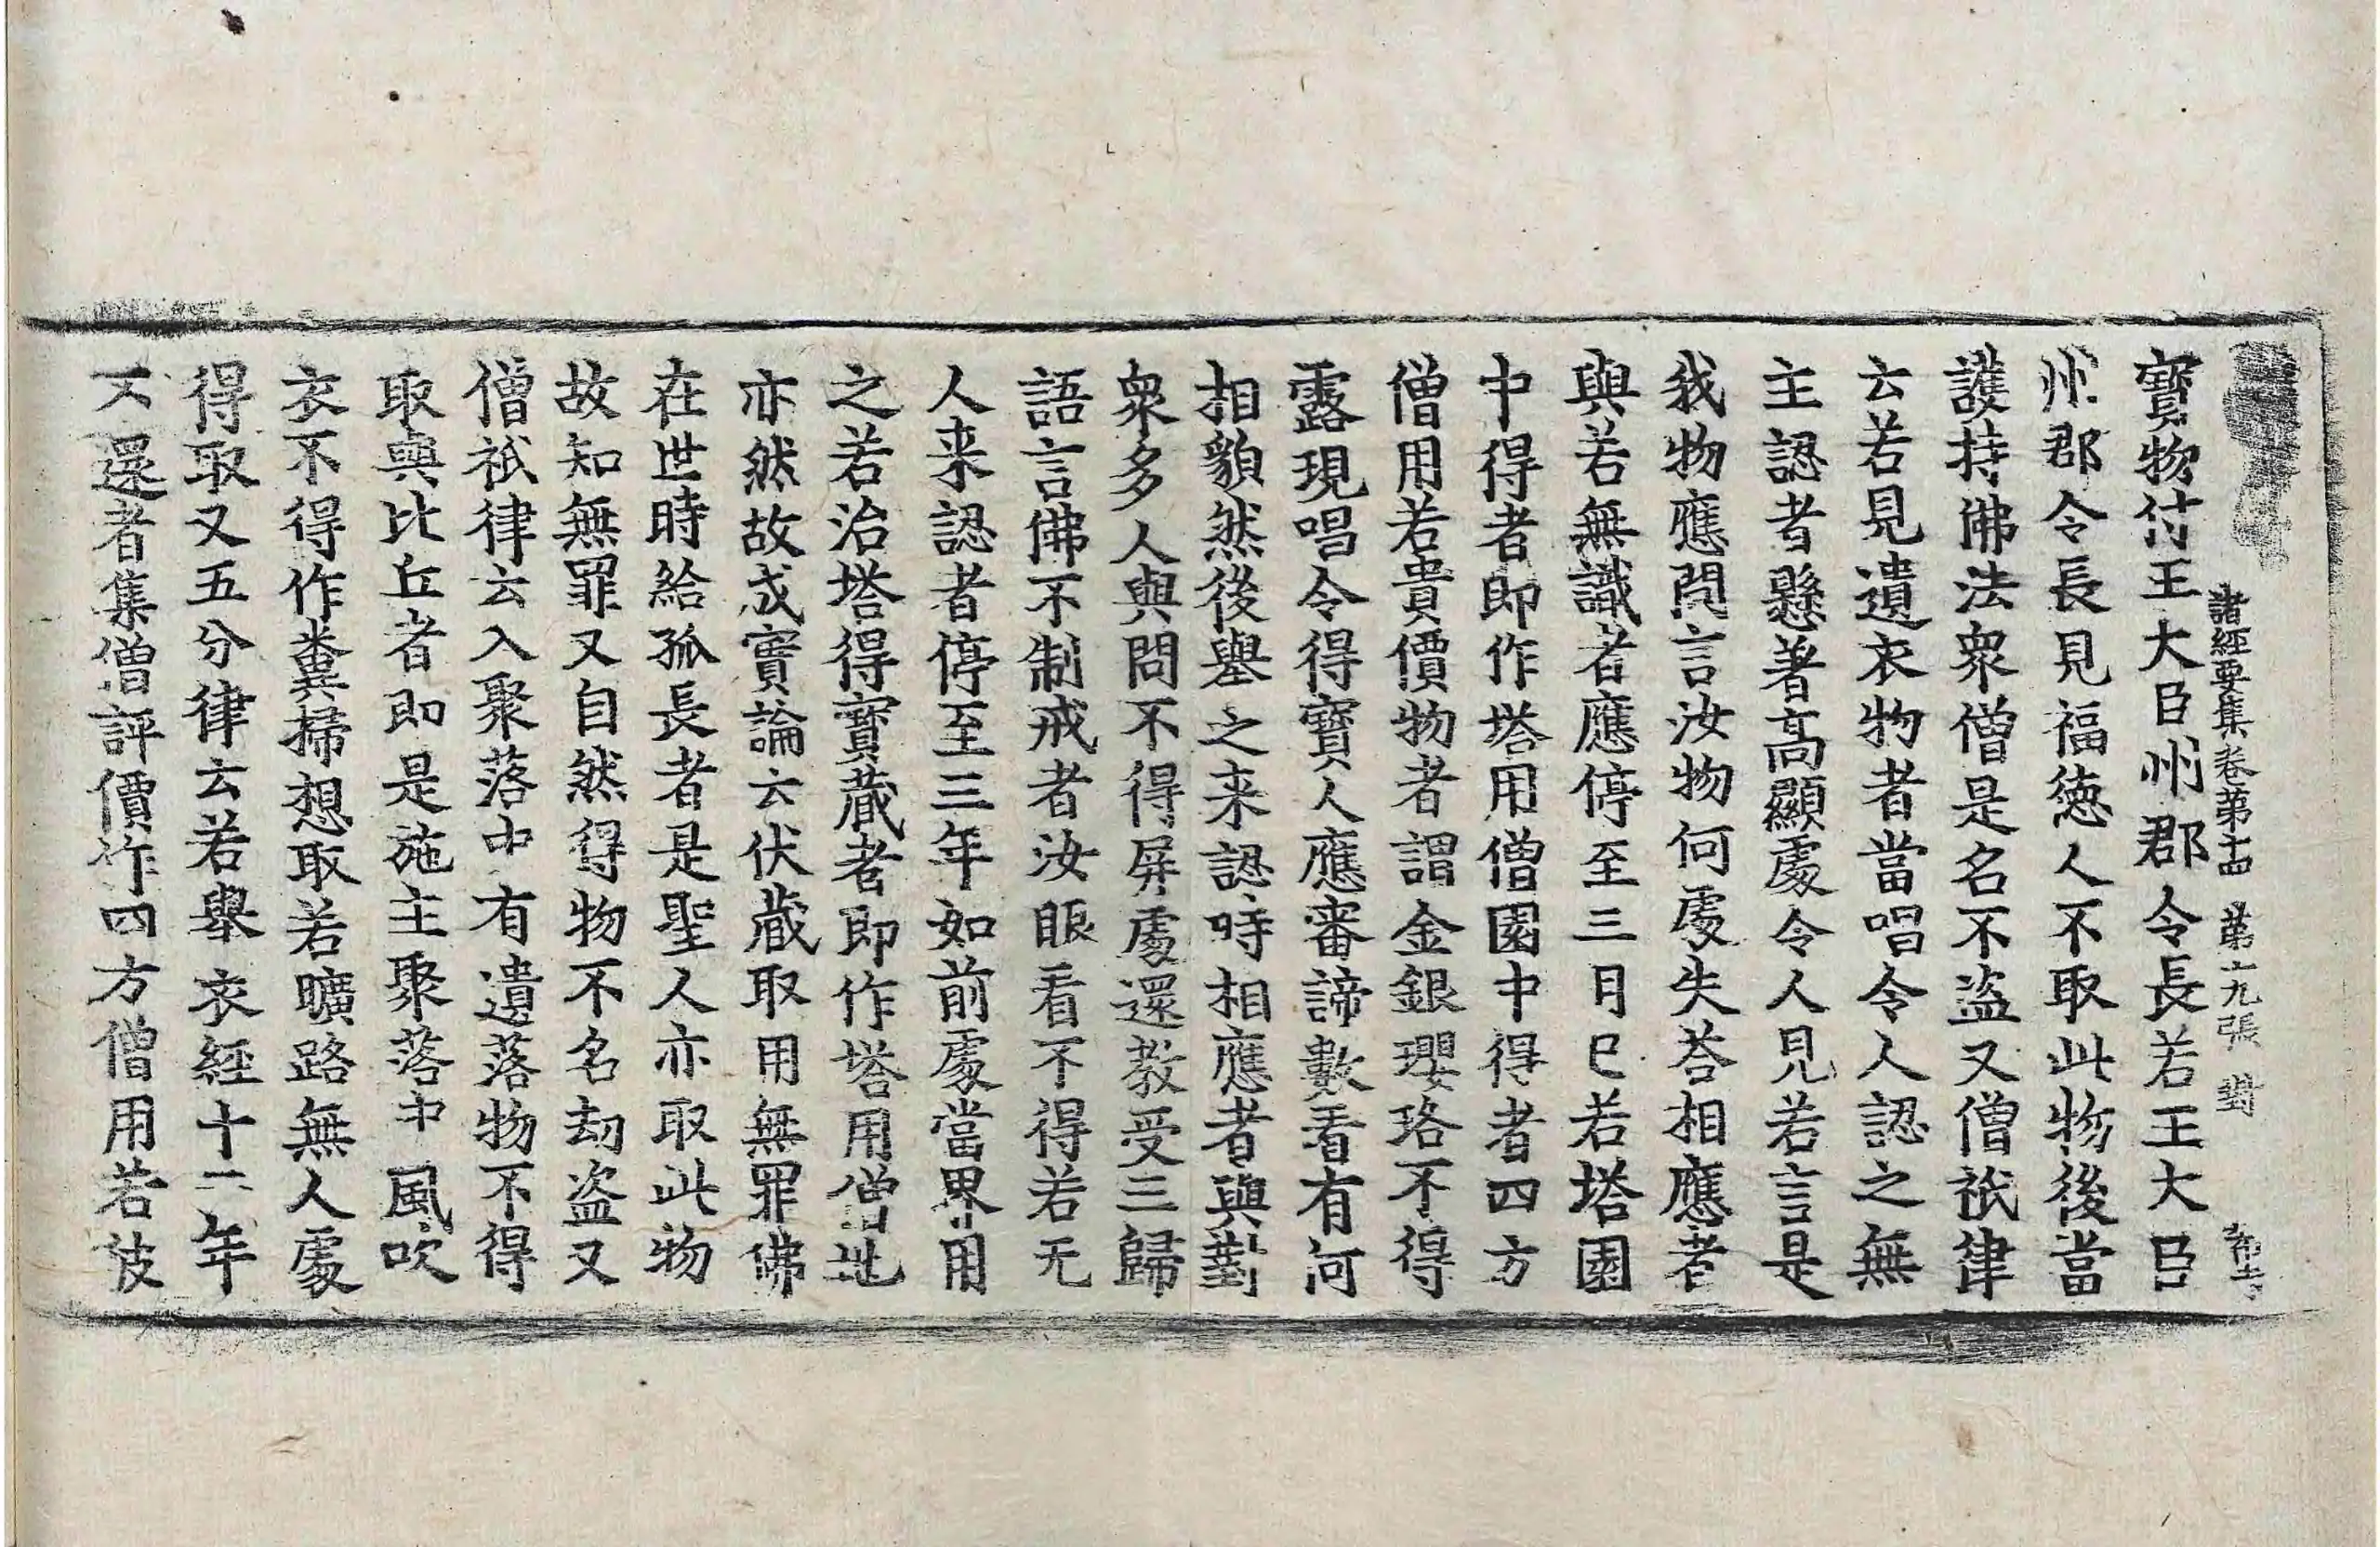 諸經要集卷第十四 第十九張 對
寳物付王大臣州郡令長若王大臣
州郡令長見福德人不取此物後當
護持佛法衆僧是名不盗又僧祇律
云若見遺衣物者當唱令人認之無
主認者懸著高顯處令人見若言是
我物應問言汝物何處失荅相應者
與若無識者應停至三月巳若塔園
中得者即作塔用僧園中得者四方
僧用若貴價物者謂金銀瓔珞不得
露現唱令得寶人應審諦數看有何
相貌然後舉之来認時相應者與對
衆多人與問不得屏處還教受三歸
語言佛不制戒者汝眼看不得若无
人来認者停至三年如前處當界用
之若治塔得寶藏者即作塔用僧地
亦然故成實論云伏藏取用無罪佛
在世時給孤長者是聖人亦取此物
故知無罪又自然得物不名劫盗又
僧祇律云入聚落中有遺落物不得
取與比丘者即是施主聚落中風吹
衣不得作糞掃想取若曠路無人處
得取又五分律云若舉衣經十二年
不還者集僧評價作四方僧用若彼